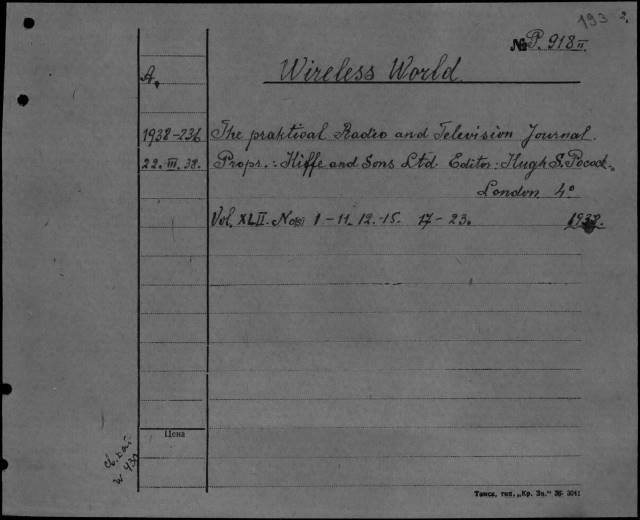 193
№ P. 918 II
A.
Wireless World
1938-236 The praktical Radio and Television Journal.
22. III. 38. Props.: Hiffe and Sons Ltd. Editor: Hugh S. Pocock.
London 4°
Vol. XLII. No(s) 1-11. 12.-15. 17-23. 1938.
Цена
Томск, тип. „Кр. Зн.“ 36- 3041